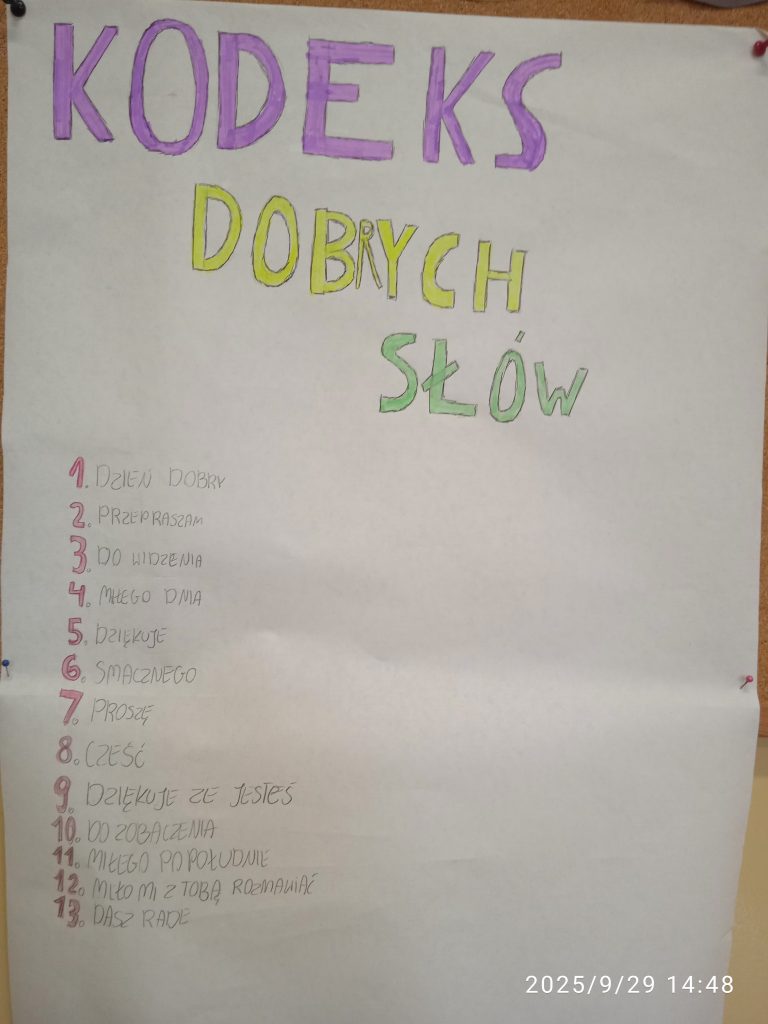 KODEKS
DOBRYCH
SŁÓW
1. DZIEŃ DOBRY
2. PRZEPRASZAM
3. DO WIDZENIA
4. MIŁEGO DNIA
5. DZIĘKUJE
6. SMACZNEGO
7. PROSZĘ
8. CZEŚĆ
9. DZIĘKUJE ZE JESTEŚ
10. DO ZOBACZENIA
11. MIŁEGO POPOŁUDNIE
12. MIŁO MI Z TOBĄ ROZMAWIAĆ
13. DASZ RADE
2025/9/29 14:48